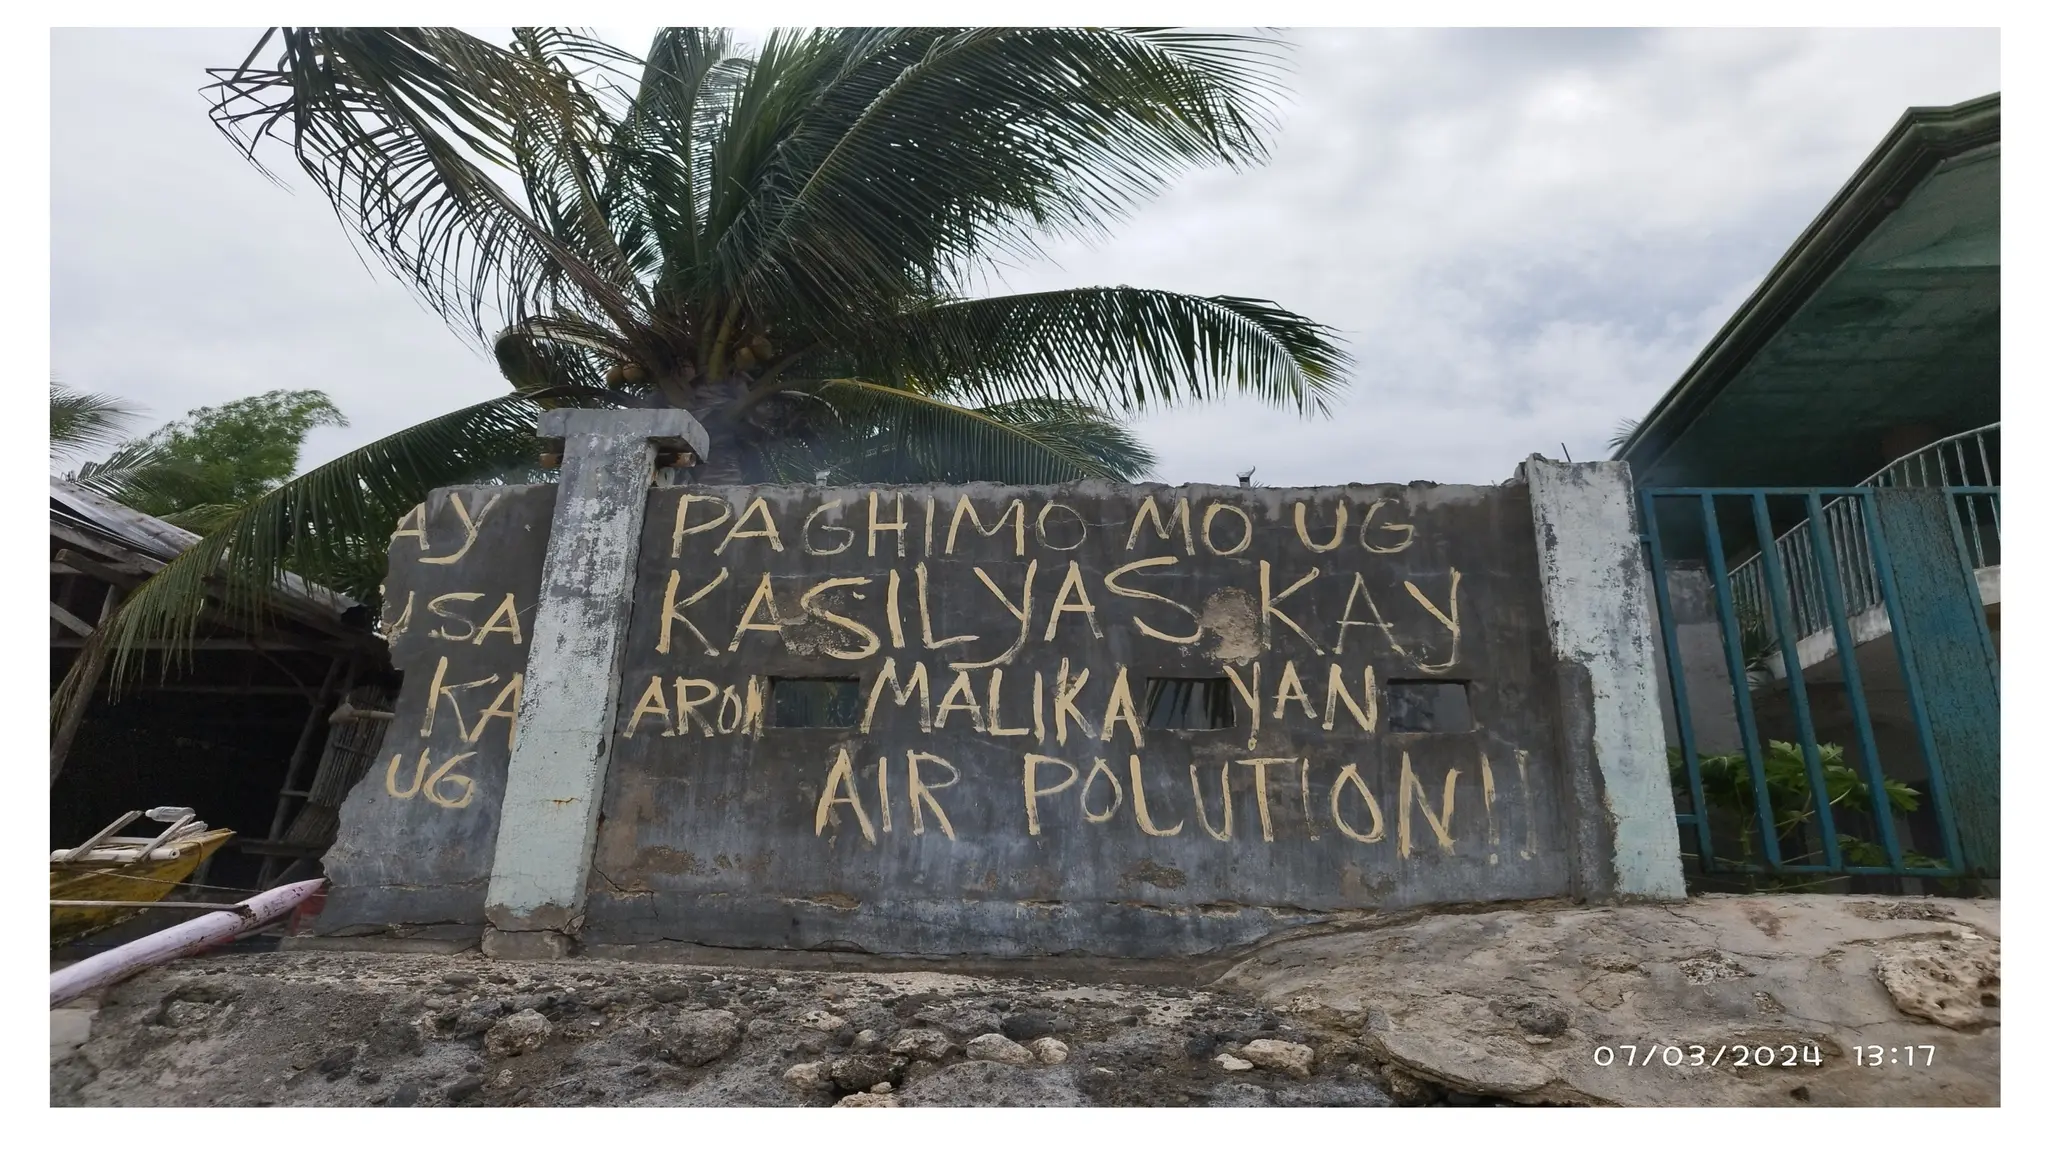 AY
USA
KA
UG
PAGHIMO MO UG
KASILYAS KAY
ARON MALIKAYAN
AIR POLUTION!!
07/03/2024 13:17